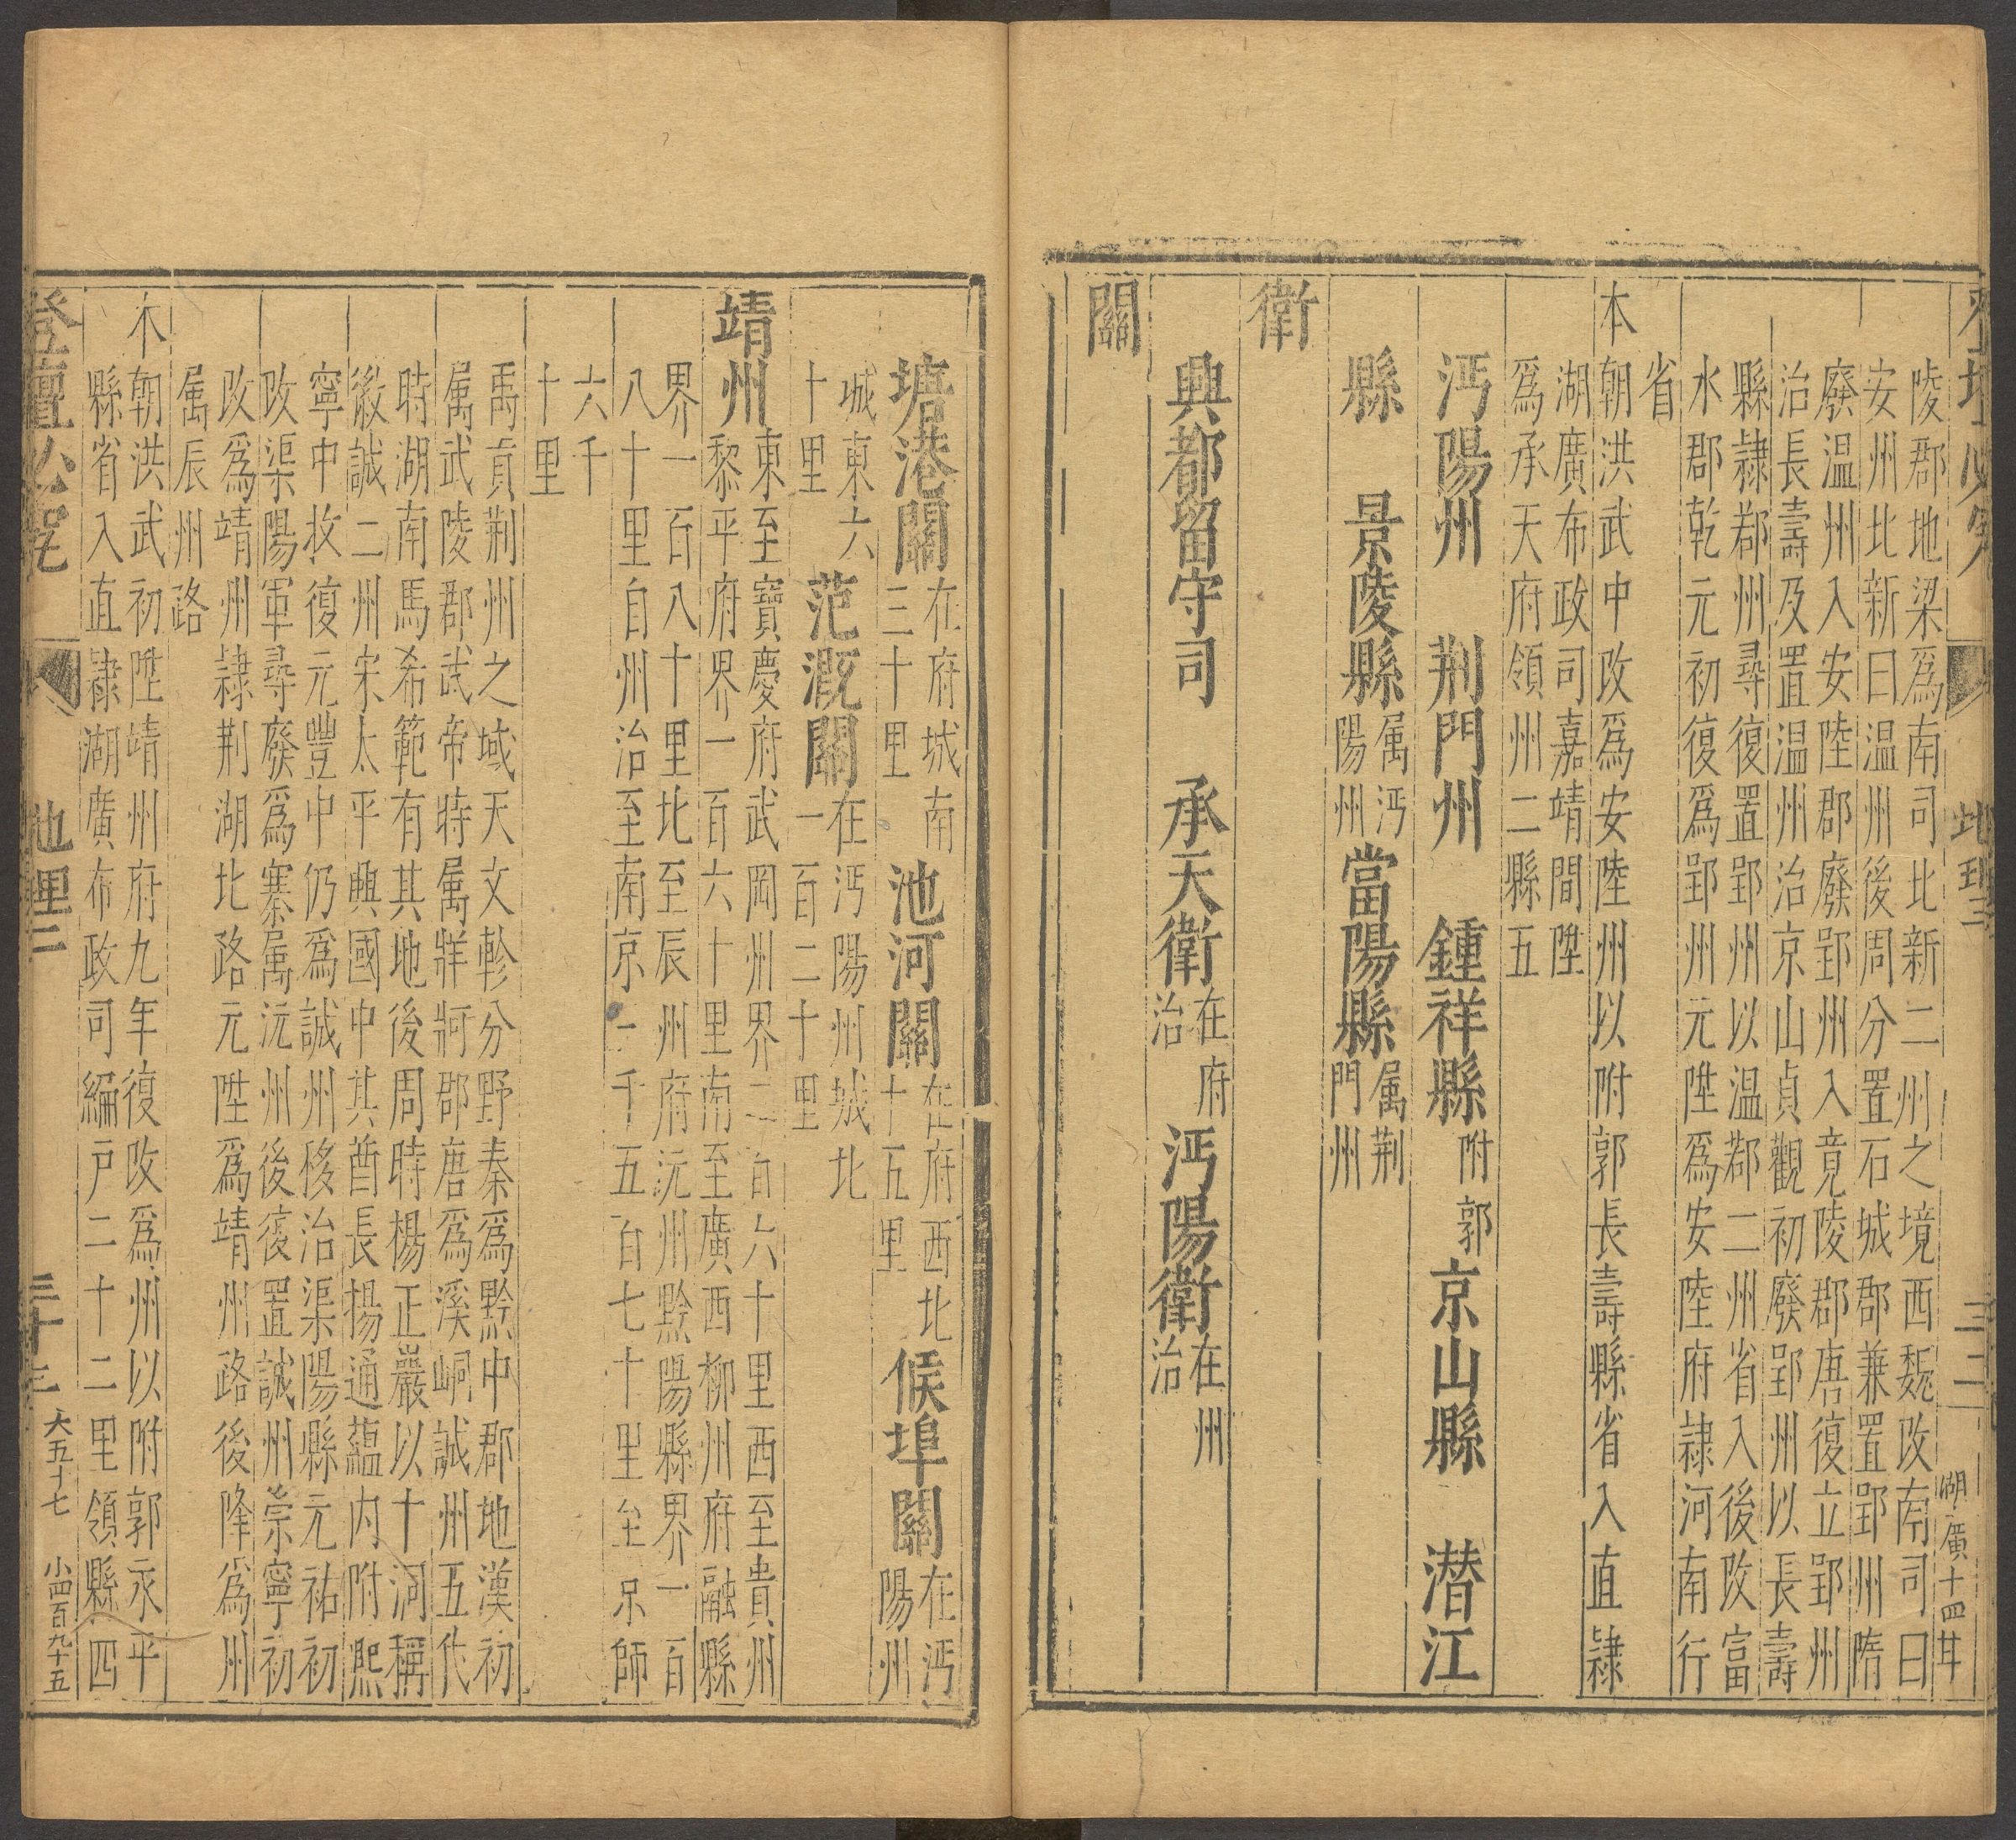 地理三
三二
湖廣十四
陵郡地梁爲南司北新二州之境西魏改南司曰
安州北新曰温州後周分置石城郡兼置郢州隋
廢温州入安陸郡廢郢州入竟陵郡唐復立郢州
治長壽及置温州治京山貞觀初廢郢州以長壽
縣隷鄀州尋復置郢州以温鄀二州省入後改富
水郡乾元初復爲郢州元陞爲安陸府隷河南行
省
本朝洪武中改爲安陸州以附郭長壽縣省入直隷
湖廣布政司嘉靖間陞
爲承天府領州二縣五
沔陽州 荆門州 鍾祥縣附郭 京山縣 潜江
縣 景陵縣属沔陽州 當陽縣属荆門州
衛
興都留守司 承天衛在府治 沔陽衛在州治
關
塘港關在府城南三十里 池河關在府西北十五里 候埠關在沔陽州
城東六十里 范溉關在沔陽州城北一百二十里
靖州東至寶慶府武岡州界二百六十里西至貴州
黎平府界一百六十里南至廣西柳州府融縣
界一百八十里北至辰州府沅州黔陽縣界一百
八十里自州治至南京二千五百七十里至京師
六千
十里
禹貢荆州之域天文軫分野秦爲黔中郡地漢初
属武陵郡武帝時属牂牁郡唐爲溪峒誠州五代
時湖南馬希範有其地後周時楊正巖以十洞稱
徽誠二州宋太平興國中其酋長楊通藴内附熙
寧中收復元豐中仍爲誠州移治渠陽縣元祐初
改渠陽軍尋廢爲寨属沅州後復置誠州崇寧初
改爲靖州隷荆湖北路元陞爲靖州路後降爲州
属辰州路
本朝洪武初陞靖州府九年復改爲州以附郭永平
縣省入直隷湖廣布政司編户二十二里領縣四
登壇必究
地理三
三十三
大五十七 小四百九十五